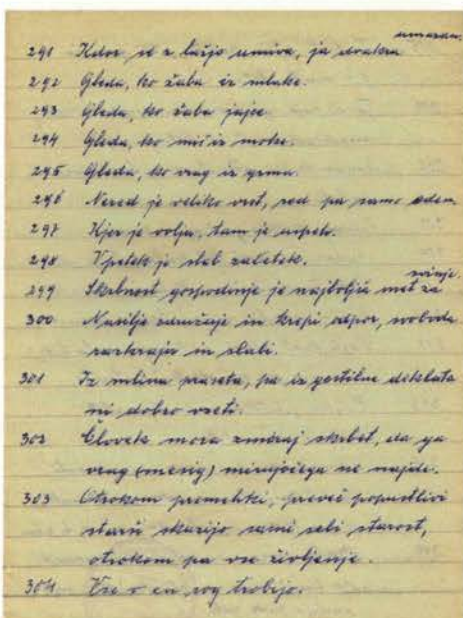 umazan.
291 Kdor se z lažjo umiva, je dvakra
292 Gleda, ko žaba iz mlake.
293 Gleda, ko žaba jajce
294 Gleda, ko miš iz moke.
295 Gleda, ko vrag iz grma.
296 Nered je veliko vrst, red pa samo eden
297 Kjer je volja, tam je uspeh.
298 V petek je slab začetek.
svinje.
299 Skrbnost gospodinje je najboljša mast za
300 Nasilje združuje in krepi odpor, svoboda
razkraja in slabi.
301 Iz mlina praseta, pa iz gostilne dekleta
ni dobro vzeti.
302 Človek mora zmiraj skrbet, da ga
vrag (mesig) mirujočega ne najde.
303 Otrokom premehki, preveč popustlivi
starši skazijo sami sebi starost,
otrokom pa vse življenje.
304 Vse v en rog trobijo.